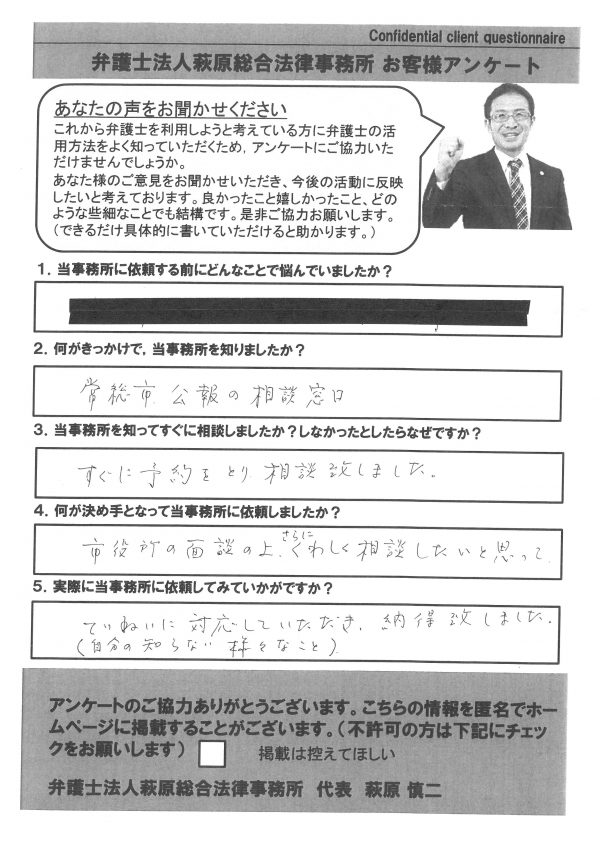 Confidential client questionnaire
弁護士法人萩原総合法律事務所 お客様アンケート
あなたの声をお聞かせください
これから弁護士を利用しようと考えている方に弁護士の活
用方法をよく知っていただくため，アンケートにご協力いた
だけませんでしょうか。
あなた様のご意見をお聞かせいただき、今後の活動に反映
したいと考えております。良かったこと嬉しかったこと、どの
ような些細なことでも結構です。是非ご協力お願いします。
（できるだけ具体的に書いていただけると助かります。）
１．当事務所に依頼する前にどんなことで悩んでいましたか？
２．何がきっかけで，当事務所を知りましたか？
常総市 公報の相談窓口
３．当事務所を知ってすぐに相談しましたか？しなかったとしたらなぜですか？
すぐに予約をとり 相談致しました。
４．何が決め手となって当事務所に依頼しましたか？
さらに
市役所の面談の上、くわしく相談したいと思って、
５．実際に当事務所に依頼してみていかがですか？
ていねいに対応していただき、納得致しました。
（自分の知らない様々なこと）
アンケートのご協力ありがとうございます。こちらの情報を匿名でホー
ムページに掲載することがございます。（不許可の方は下記にチェッ
クをお願いします）
掲載は控えてほしい
弁護士法人萩原総合法律事務所 代表 萩原 慎二